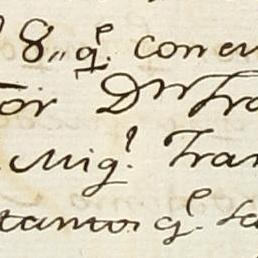 8,, q.^e con en
tor D^n Fra
Mig.^l Fran
tanto q.^e la